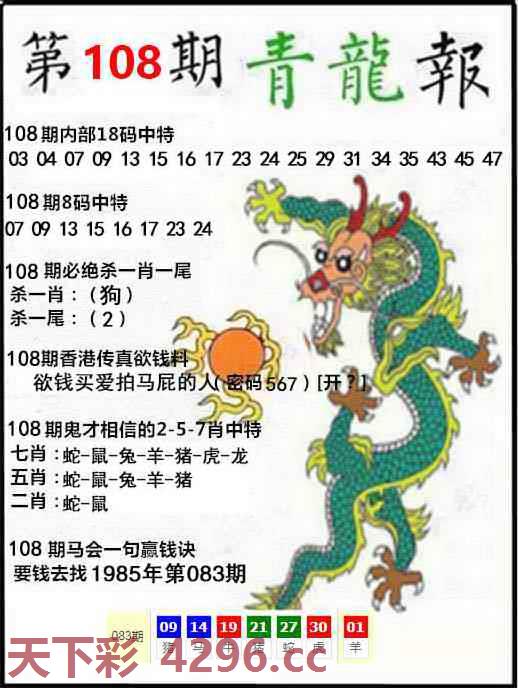 第108期青龍報
108期内部18码中特
03 04 07 09 13 15 16 17 23 24 25 29 31 34 35 43 45 47
108期8码中特
07 09 13 15 16 17 23 24
108期必绝杀一肖一尾
杀一肖：（狗）
杀一尾：（2）
108期香港传真欲钱料
欲钱买爱拍马屁的人(密码567)[开?]
108期鬼才相信的2-5-7肖中特
七肖：蛇-鼠-兔-羊-猪-虎-龙
五肖：蛇-鼠-兔-羊-猪
二肖：蛇-鼠
108期马会一句赢钱诀
要钱去找1985年第083期
083期 09 14 19 21 27 30 01
猪 马 牛 猪 蛇 虎 羊
天下彩 4296.cc